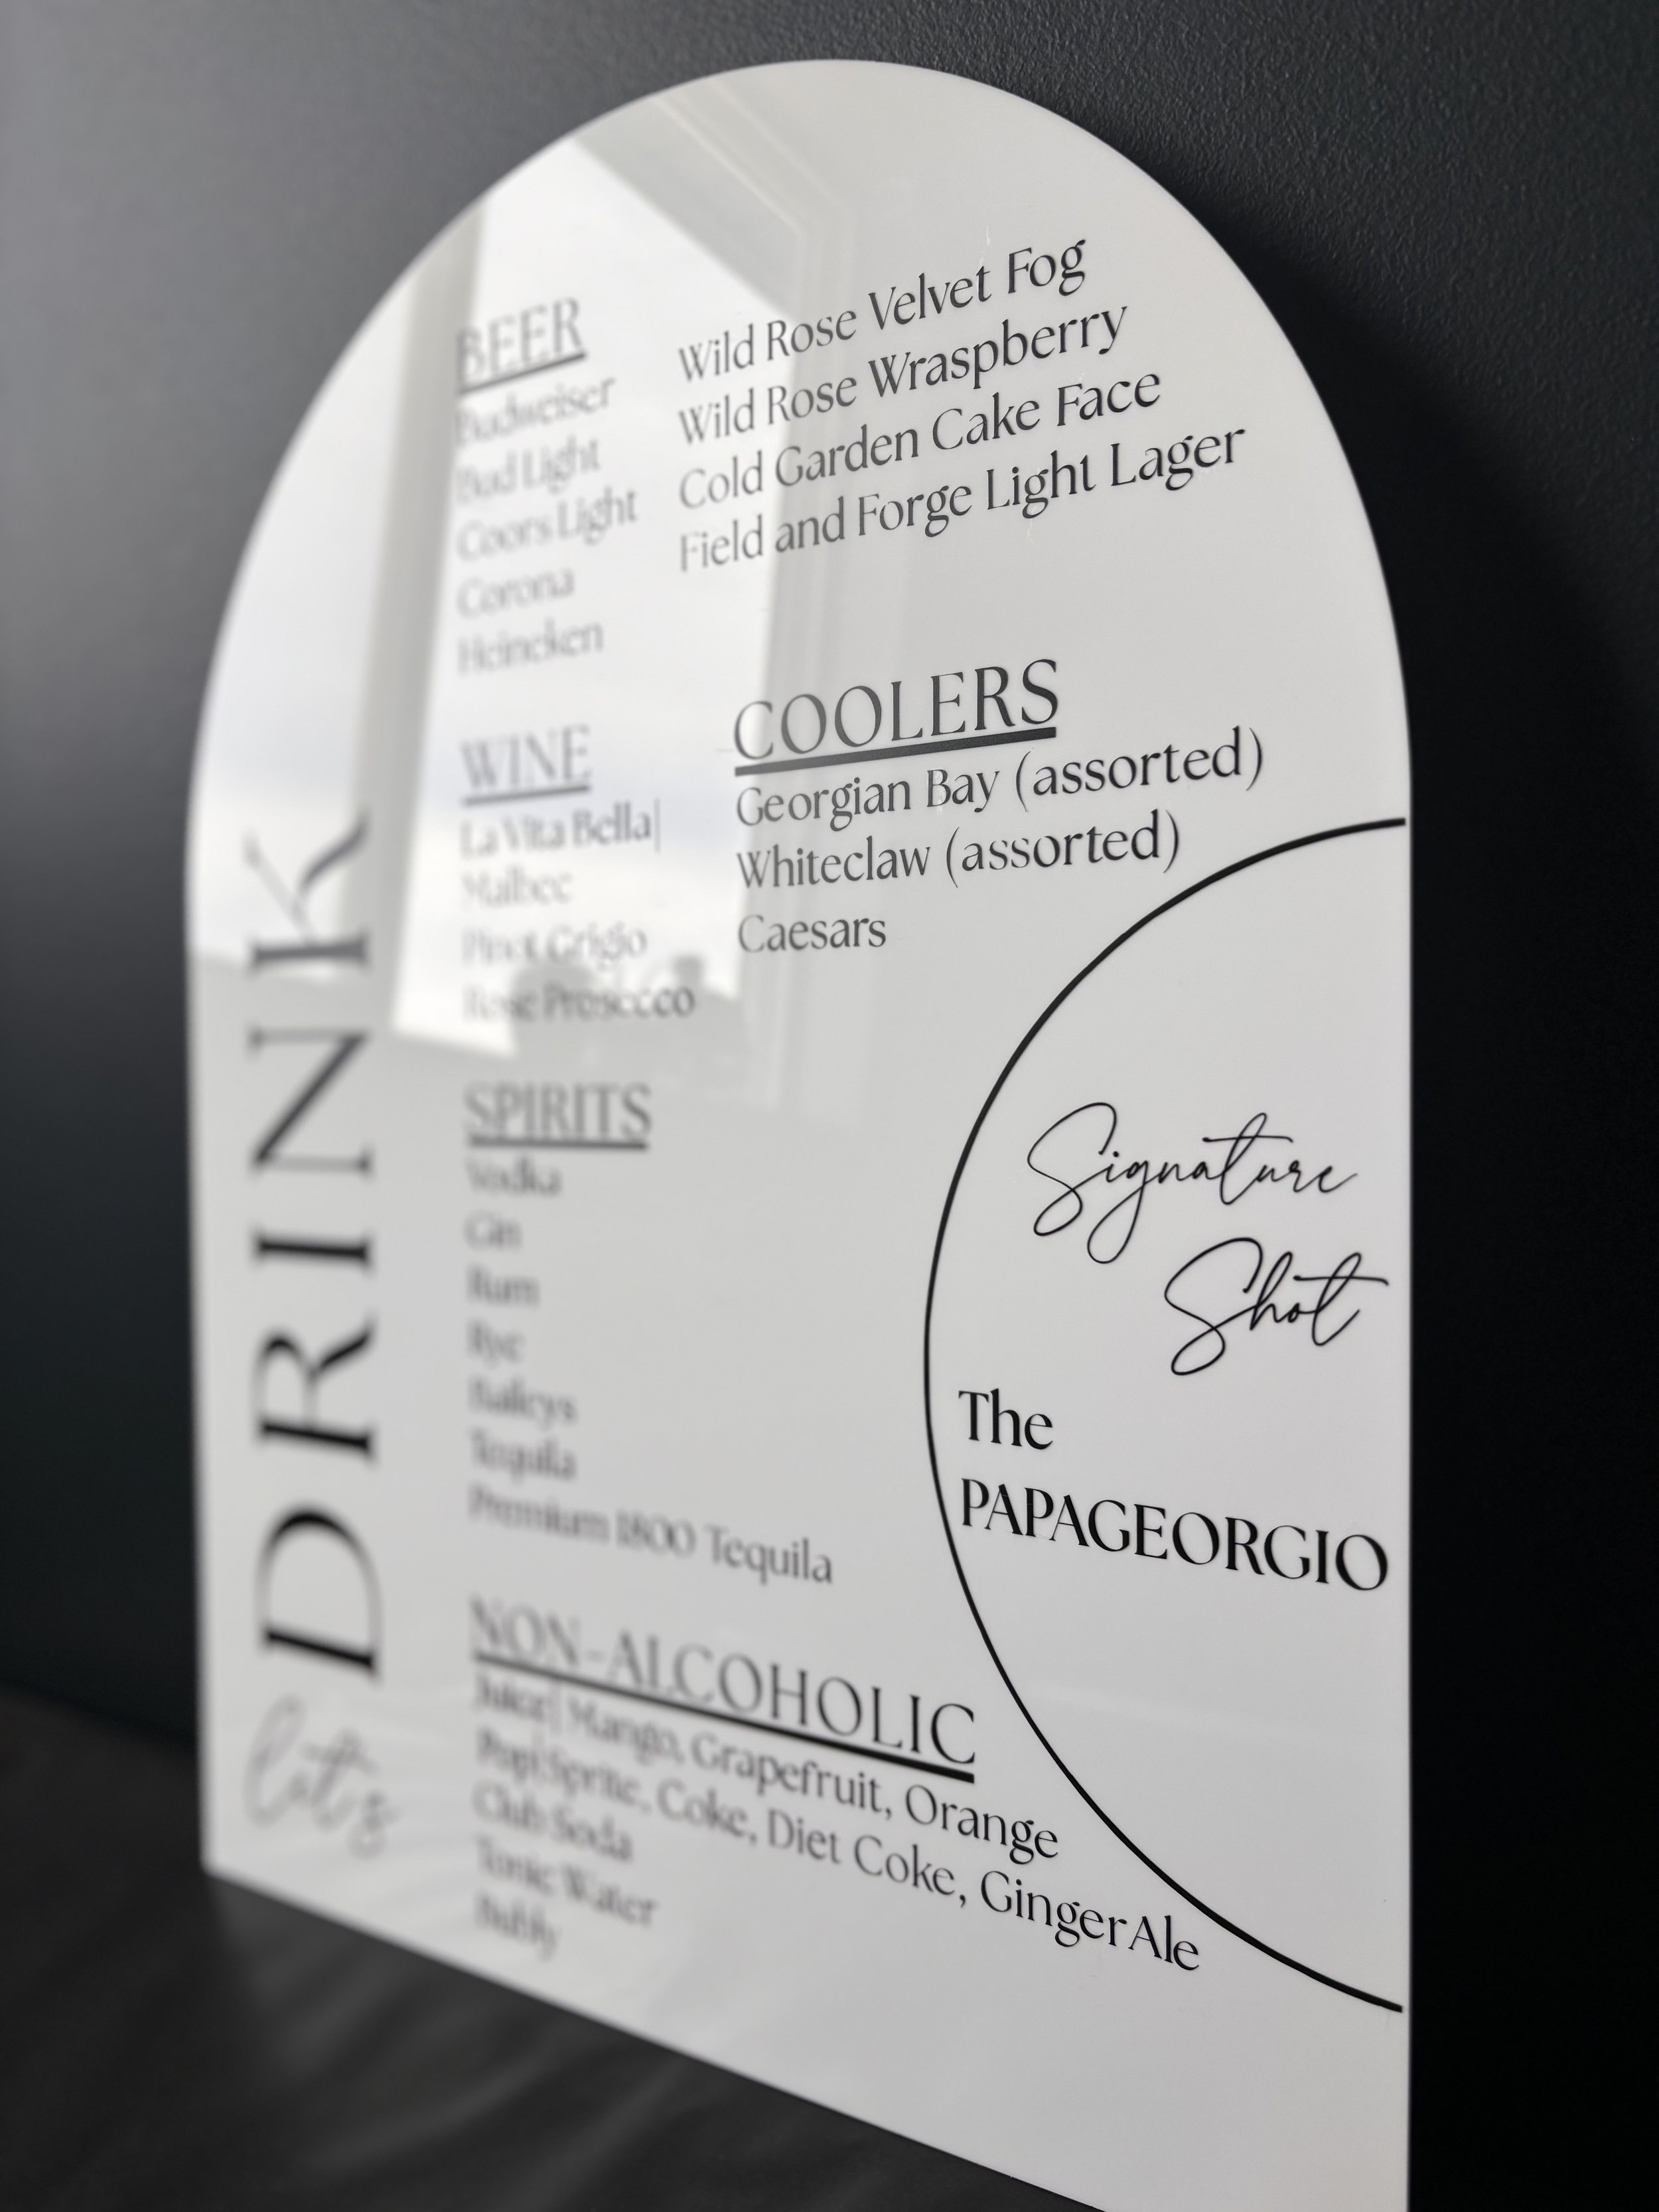 BEER
Budweiser
Bud Light
Coors Light
Corona
Heineken
Wild Rose Velvet Fog
Wild Rose Wraspberry
Cold Garden Cake Face
Field and Forge Light Lager
WINE
La Vita Bella|
Malbec
Pinot Grigio
Rose Prosecco
COOLERS
Georgian Bay (assorted)
Whiteclaw (assorted)
Caesars
SPIRITS
Vodka
Gin
Rum
Rye
Baileys
Tequila
Premium 1800 Tequila
Signature
Shot
The
PAPAGEORGIO
NON-ALCOHOLIC
Juice| Mango, Grapefruit, Orange
Pop|Sprite, Coke, Diet Coke, GingerAle
Club Soda
Tonic Water
Bubly
let's
DRINK